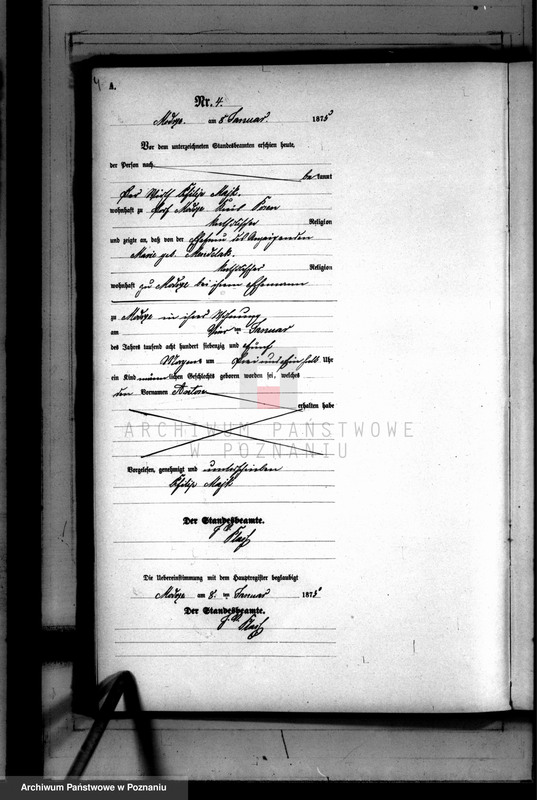 4
A.
Nr. 4.
am 8 Januar 1875
Vor dem unterzeichneten Standesbeamten erschien heute,
der Person nach
be kannt
der Wirth Philip Majk.
wohnhaft zu Kreis Posen
katholischer Religion
und zeigte an, daß von der Ehefrau des Anzeigenden
Marie geb.
katholischer Religion
wohnhaft zu bei ihrem Ehemann
zu in ihrer Wohnung
am vier ten Januar
des Jahres tausend acht hundert siebenzig und fünf
um drei und ein halb Uhr
ein Kind männlichen Geschlechts geboren worden sei, welches
den Vornamen
erhalten habe
ARCHIWUM PAŃSTWOWE
W POZNANIU
Vorgelesen, genehmigt und unterschrieben
Philip Majk
Der Standesbeamte.
Die Uebereinstimmung mit dem Hauptregister beglaubigt
am 8. ten Januar 1875
Der Standesbeamte.
Archiwum Państwowe w Poznaniu